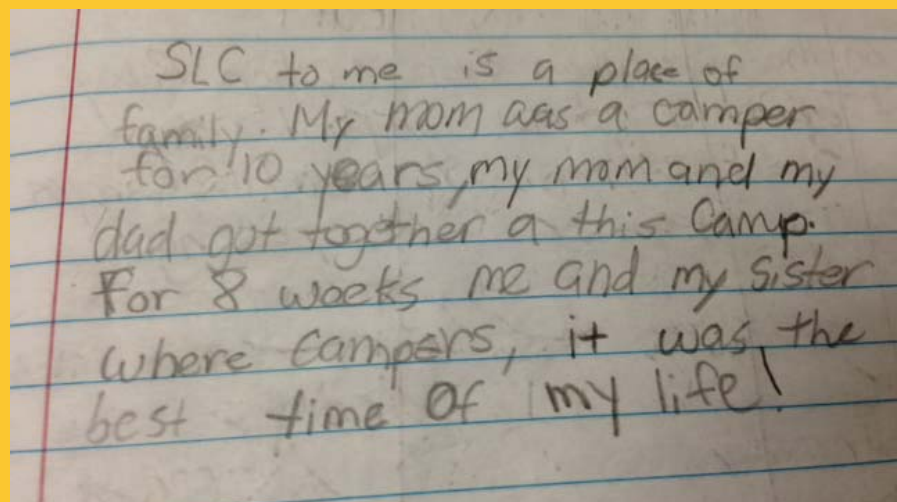 SLC to me is a place of
family. My mom was a camper
for 10 years, my mom and my
dad got together a this Camp.
For 8 weeks me and my Sister
where campers, it was the
best time Of my life!